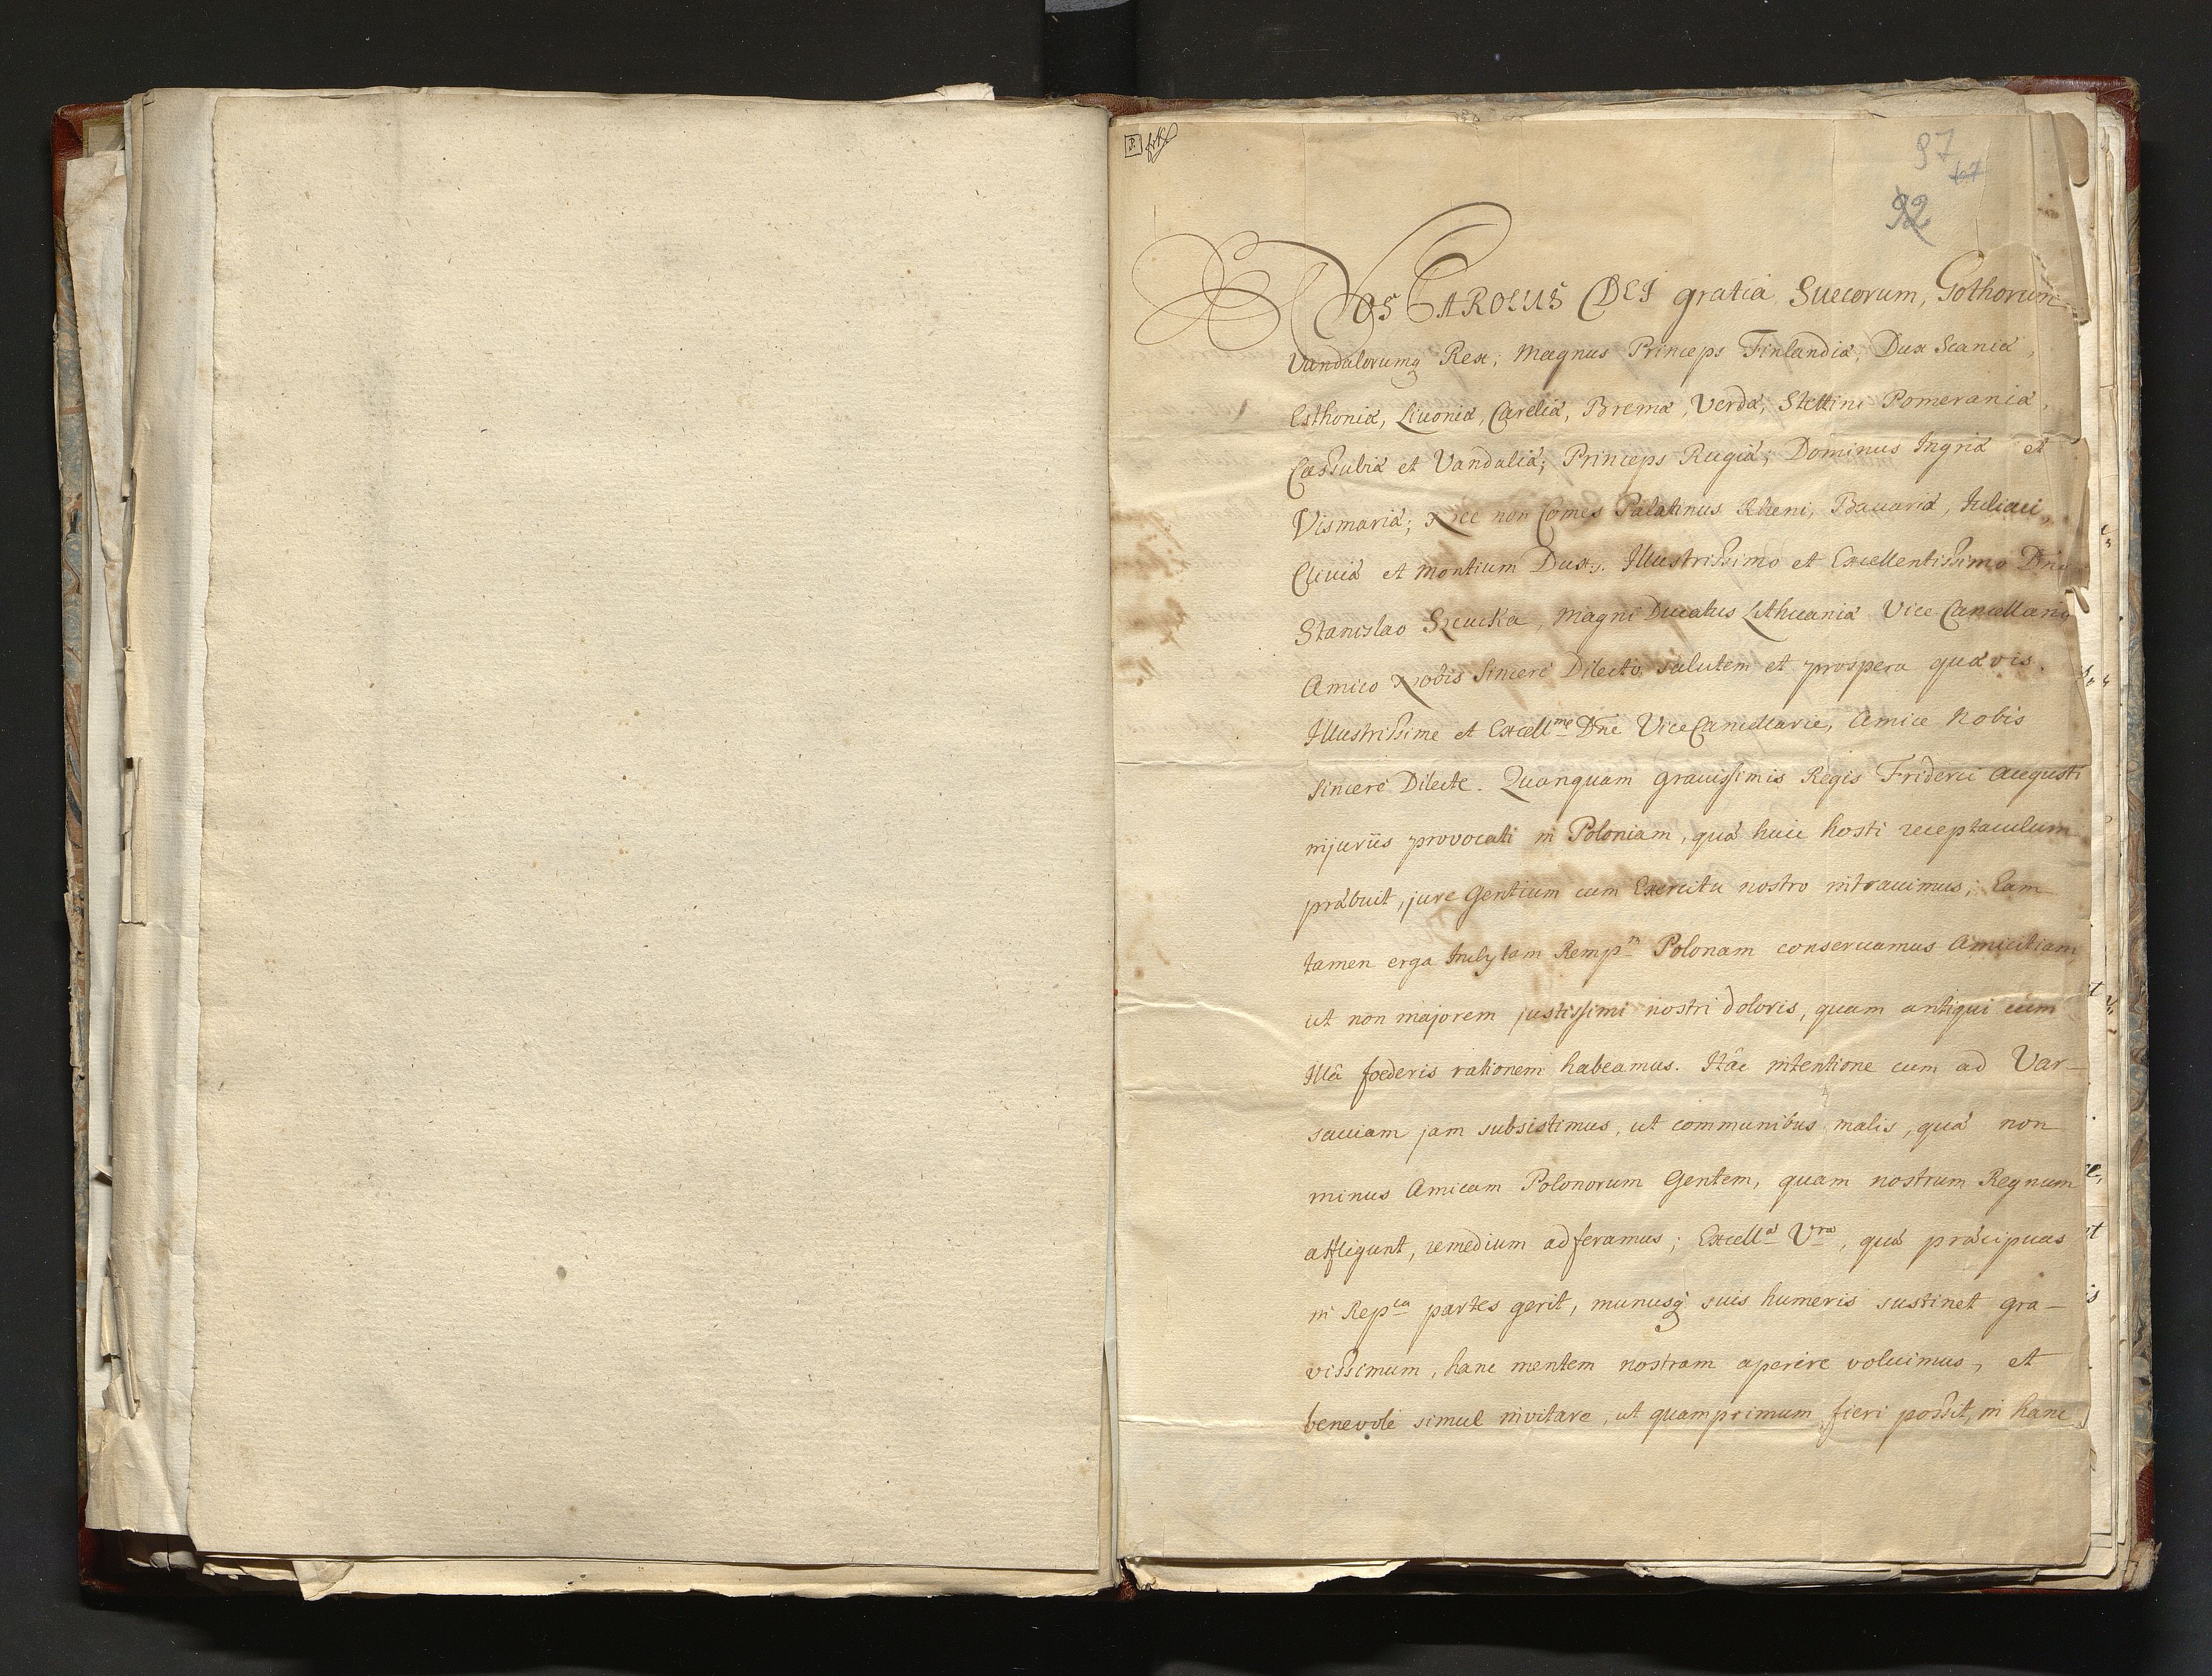 97
67
92
NOS CAROLUS DEI gratia Suecorum, Gothorum
Vandalorumq Rex; Magnus Princeps Finlandiæ, Dux Scaniæ,
Esthoniæ, Livoniæ, Careliæ, Bremæ, Verdæ, Stettini Pomeraniæ,
Cassubiæ et Vandaliæ; Princeps Rugiæ; Dominus Ingriæ et
Vismariæ; Nec non Comes Palatinus Rheni, Bauariæ, Juliaci,
Cliviæ et Montium Dux. Illustrissimo et Excellentissimo Dno
Stanislao Szcuka, Magni Ducatus Lithuaniæ Vice Cancellario
Amico Nobis Sincere Dilecto, salutem et prospera quævis.
Illustrissime et Excellme Dne ViceCancellarie, Amice Nobis
Sincere Dilecte. Quanquam gravissimis Regis Friderici Augusti
injuriis provocati in Poloniam, quæ huic hosti receptaculum
præbuit, jure Gentium cum Exercitu nostro intrauimus; Eam
tamen erga Inclytam Rempm Polonam conseruamus Amicitiam,
ut non majorem justissimi nostri doloris, quam antiqui cum
Illâ foederis rationem habeamus. Hâc intentione cum ad Var-
sauiam jam subsistimus, ut communibus malis, quæ non
minus Amicam Polonorum Gentem, quam nostrum Regnum
affligunt, remedium adferamus; Excellæ Vræ, quæ præcipuas
in Repca partes gerit, munusq suis humeris sustinet gra-
vissimum, hanc mentem nostram aperire voluimus, et
benevolè simul invitare, ut quamprimum fieri possit, in hanc